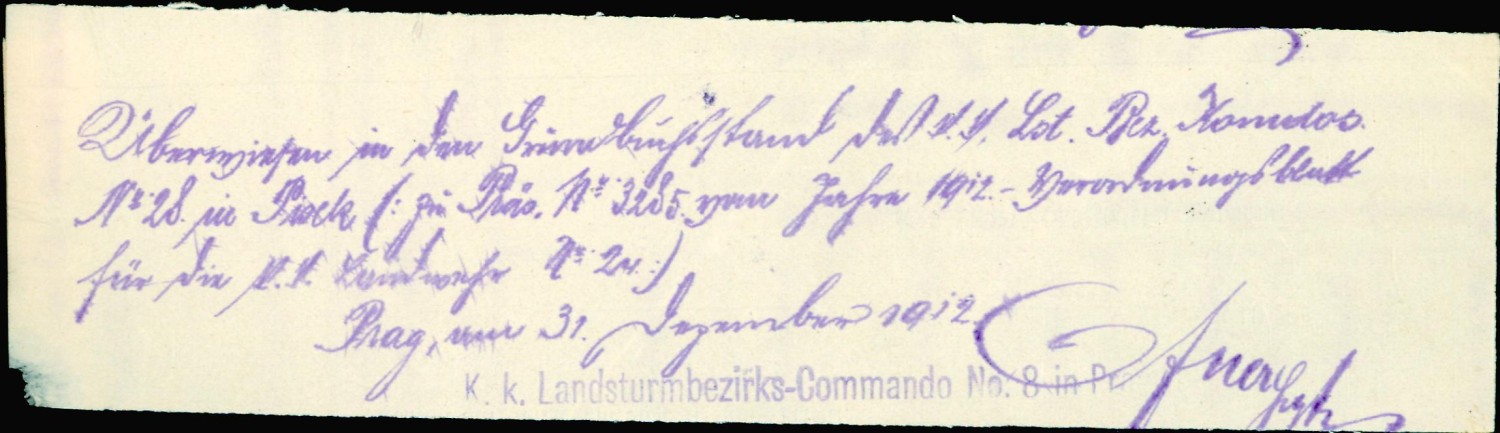 Überwiesen in den Grundbuchsstand des k.k. Lst. Bez. Komdos.
No 28. in Pisek (: zu Präs. No 3285 vom Jahre 1912.- Verordnungsblatt
für die k.k. Landwehr No 24:)
Prag, am 31. Dezember 1912
K. k. Landsturmbezirks-Commando No. 8 in Pr